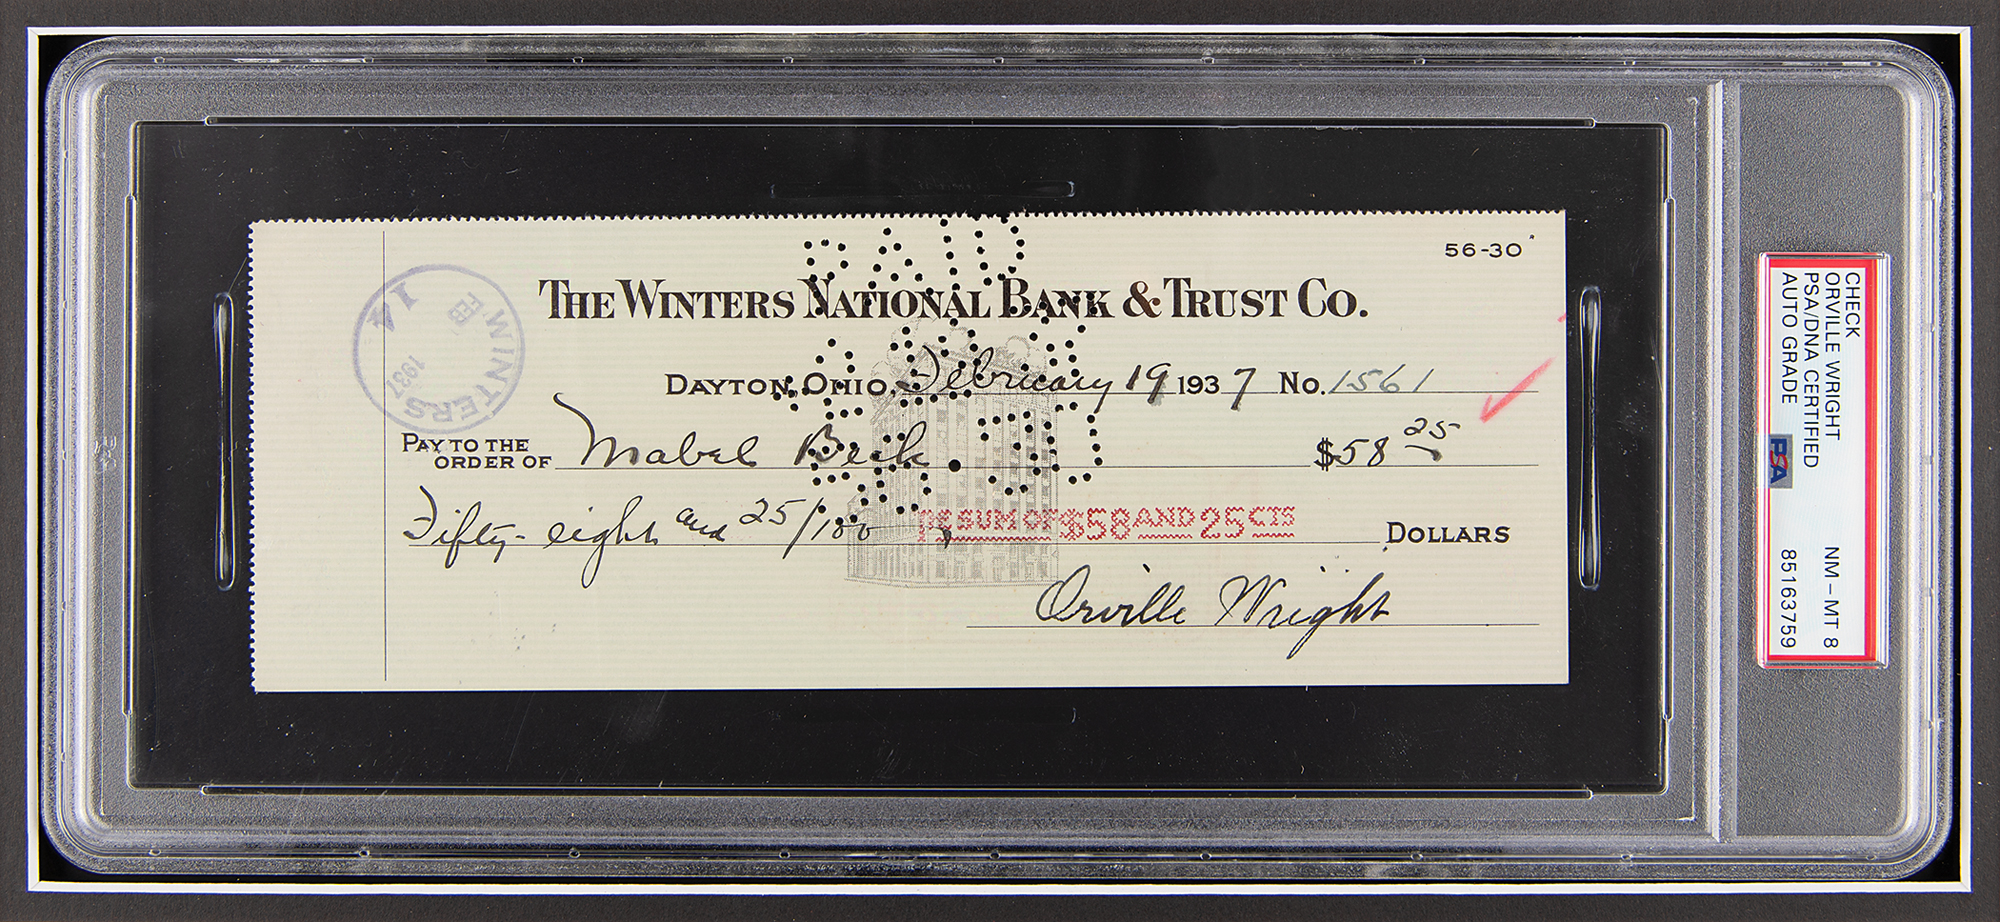 56-30
THE WINTERS NATIONAL BANK & TRUST CO.
DAYTON, OHIO, February 19 1937 No. 1561
PAY TO THE
ORDER OF Mabel Beck $58 25
Fifty-eight and 25/100 SUM OF $58 AND 25 CTS DOLLARS
Orville Wright
WINTERS
FEB
1937
1A
PAID
56-30
CHECK
ORVILLE WRIGHT
PSA/DNA CERTIFIED NM-MT 8
AUTO GRADE 85163759
PSA